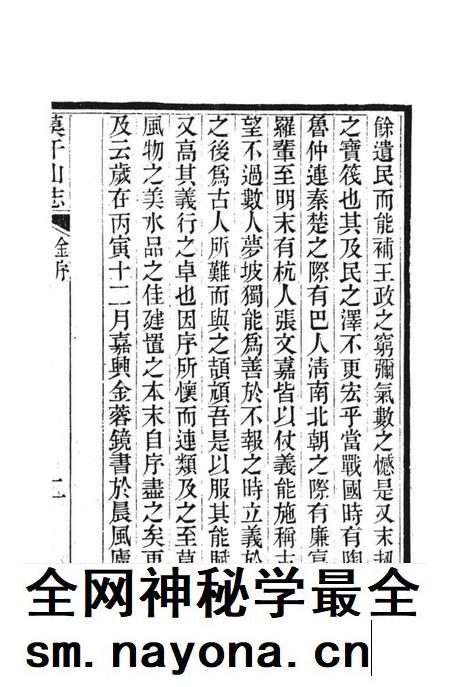 餘遺民而能補王政之窮彌氣數之憾是又末劫
之寶筏也其及民之澤不更宏乎當戰國時有陶
魯仲連秦楚之際有巴人淸南北朝之際有廉
羅輩至明末有杭人張文嘉皆以仗義能施稱古
望不過數人夢坡獨能爲善於不報之時立義於
之後爲古人所難而與之頡頏吾是以服其能賦
又高其義行之卓也因序所懷而連類及之至莫
風物之美水品之佳建置之本末自序盡之矣更
及云歲在丙寅十二月嘉興金蓉鏡書於晨風廬
莫干山志
金序
全网神秘学最全
sm.nayona.cn